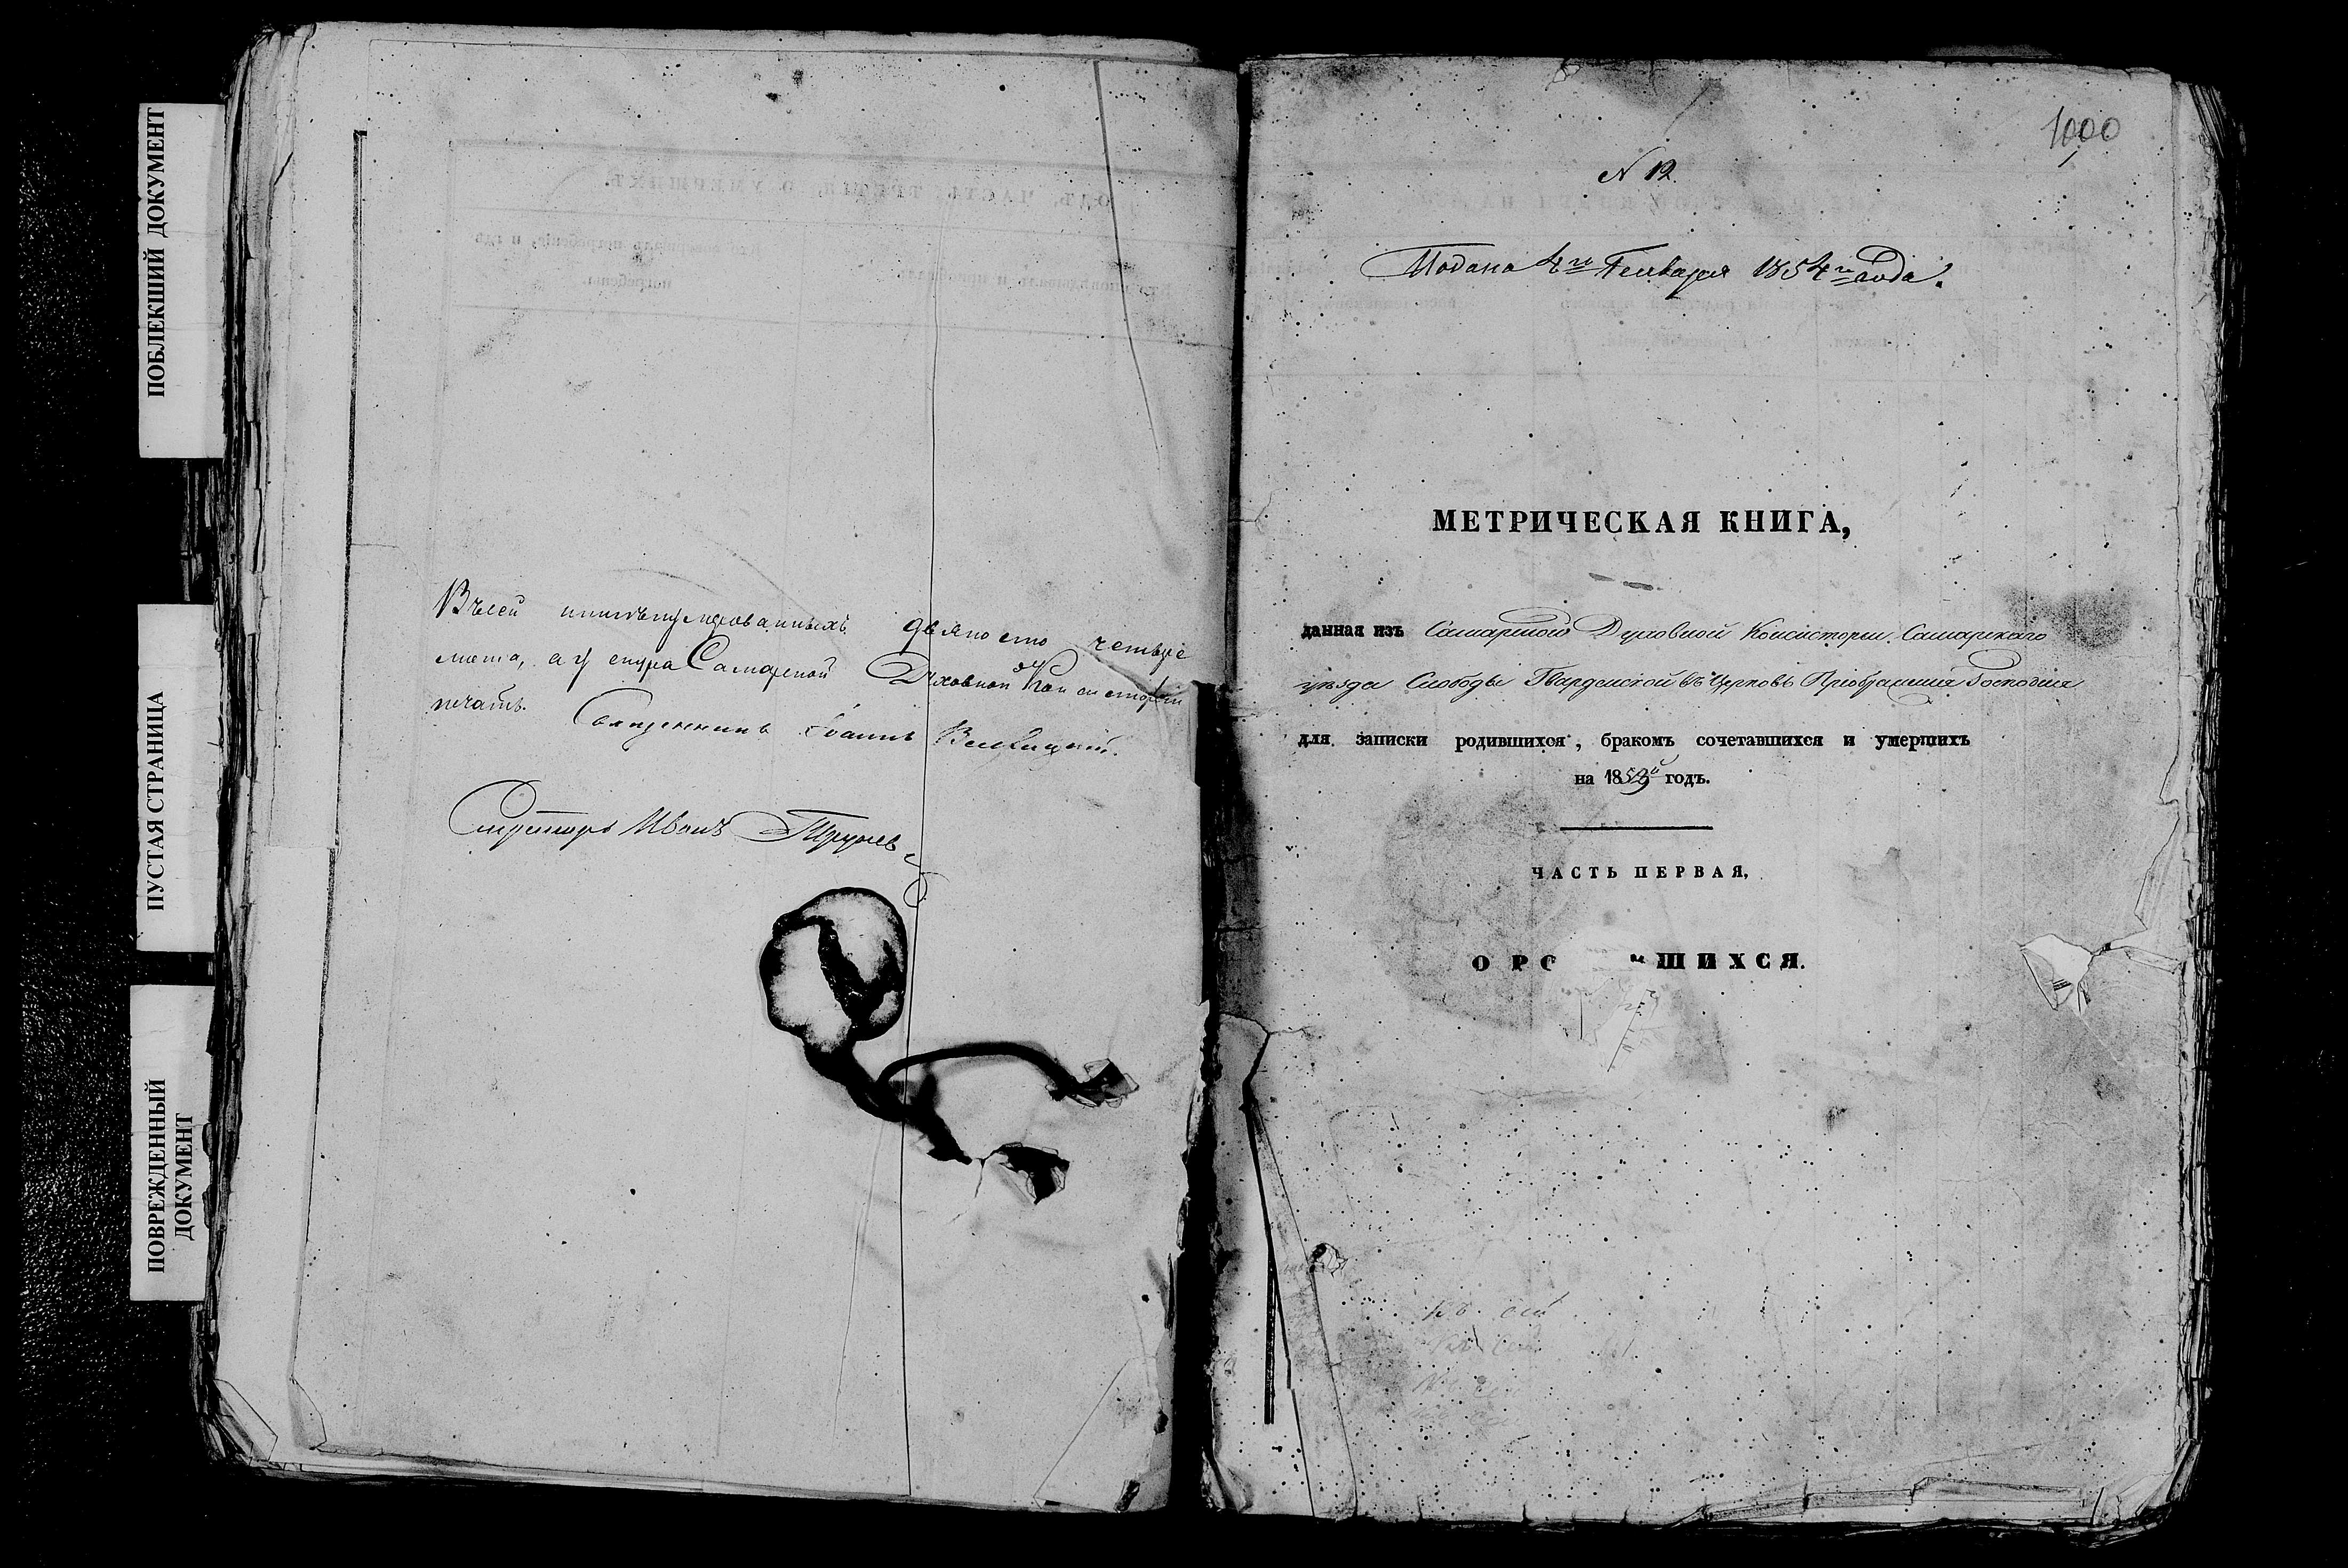 ПОБЛЕКШИЙ ДОКУМЕНТ
ПУСТАЯ СТРАНИЦА
ПОВРЕЖДЕННЫЙ
ДОКУМЕНТ
Въ сей девяносто четыре
листа, а у снура Самарской Духовной Консисторіи
печать. Священникъ Іоаннъ
Секретарь Иванъ
1000
N 12.
Подана 4го Генваря 1854го года.
МЕТРИЧЕСКАЯ КНИГА,
данная изъ Самарской Духовной Консисторіи. Самарскаго
уѣзда Слободы Гвардейской въ Церковь Преображенія Господня
для записки родившихся, бракомъ сочетавшихся и умершихъ
на 1853й годъ.
ЧАСТЬ ПЕРВАЯ,
О РО ИШИХСЯ.